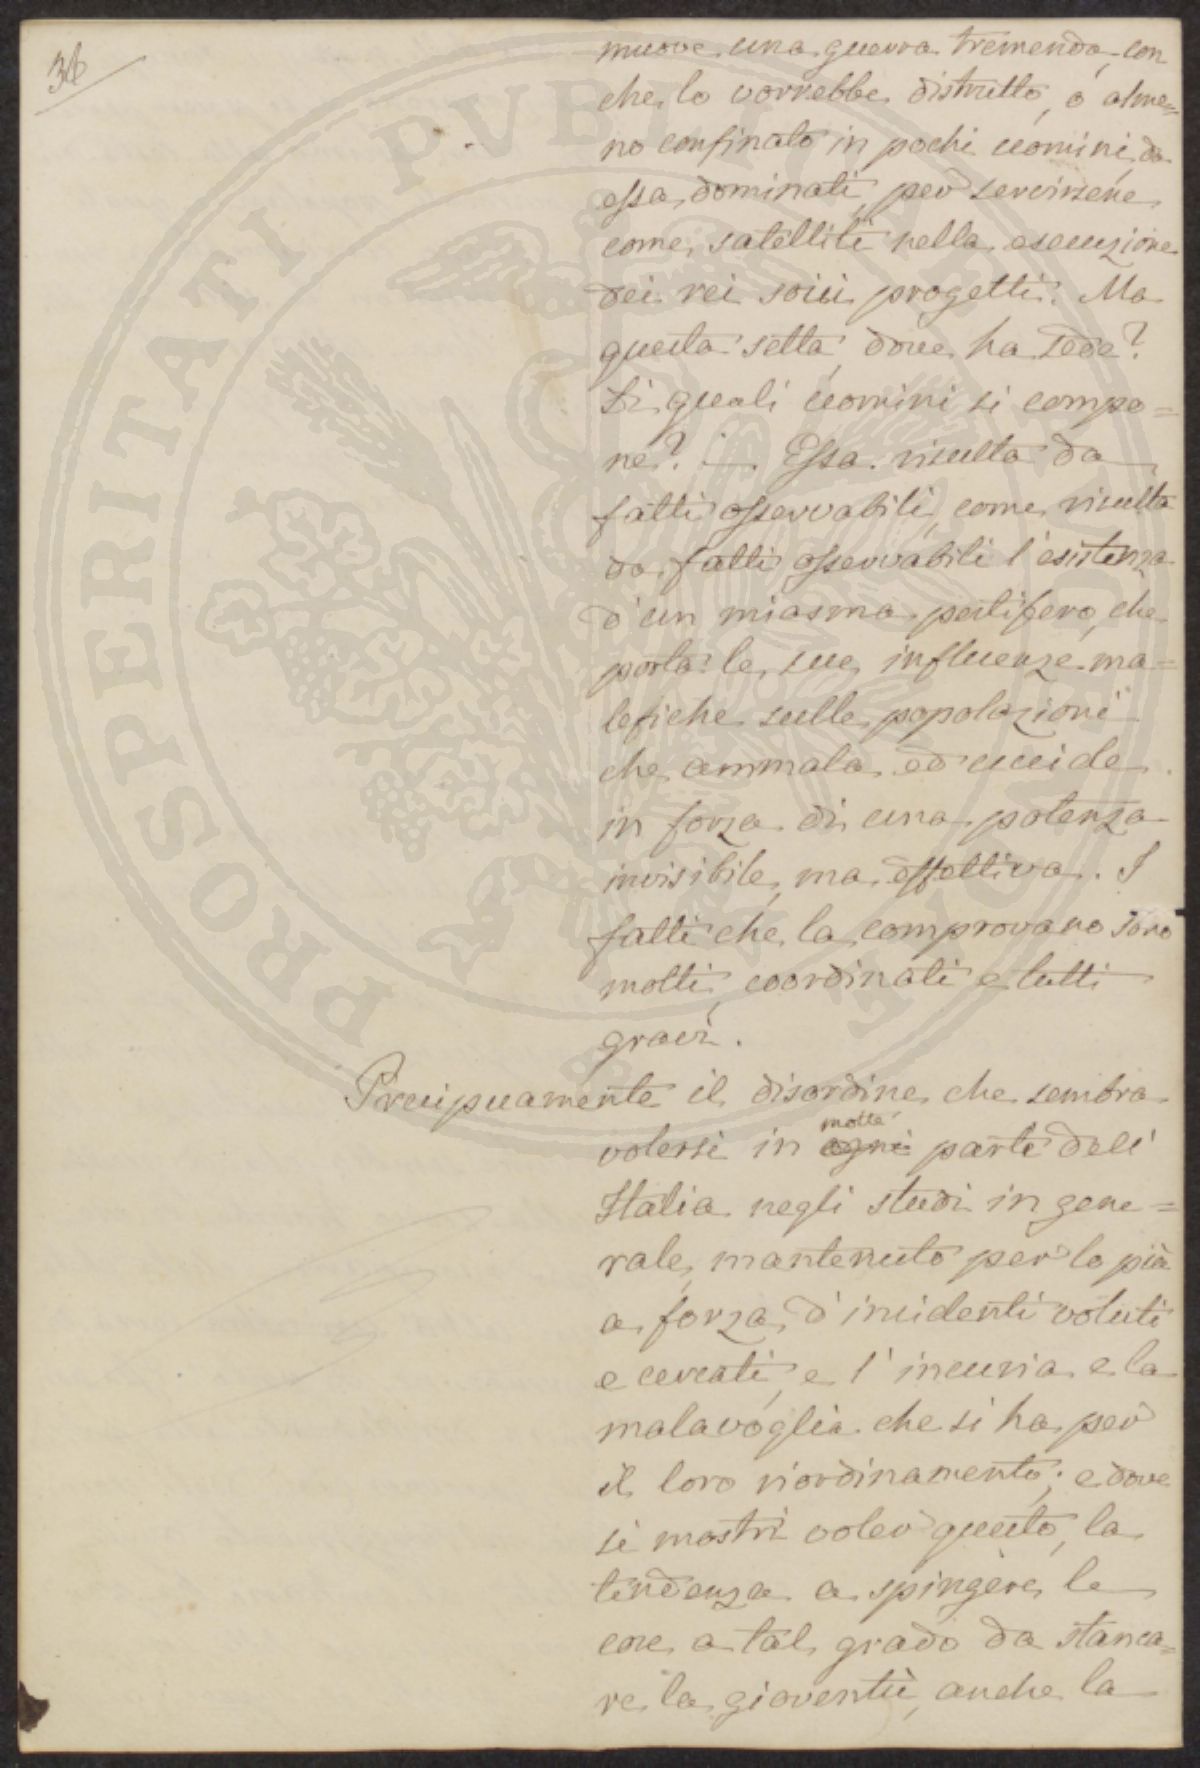 36
muove una guerra tremenda, con
che lo vorrebbe distrutto, o alme=
no confinato in pochi uomini, da
essa dominati, per servirsene
come satelliti nella esecuzione
dei rei suoi progetti. Ma
questa setta, dove ha sede?
Di quali uomini si compo=
ne? — Essa risulta da
fatti osservabili, come risulta
da fatti osservabili l'esistenza
d'un miasma pestifero, che
porta le sue influenze ma=
lefiche sulle popolazioni
che ammala ed uccide
in forza di una potenza
invisibile, ma effettiva. I
fatti che la comprovano sono
molti, coordinati e tutti
gravi.
Precipuamente il disordine che sembra
molte
volersi in ogni parte dell'
Italia negli studi in gene=
rale, mantenuto per lo più
a forza d'incidenti voluti
e cercati, e l'incuria e la
malavoglia che si ha per
il loro riordinamento; e dove
si mostri voler questo, la
tendenza a spingere le
cose a tal grado da stanca=
re la gioventù, anche la
PROSPERITATI PVBLICAE